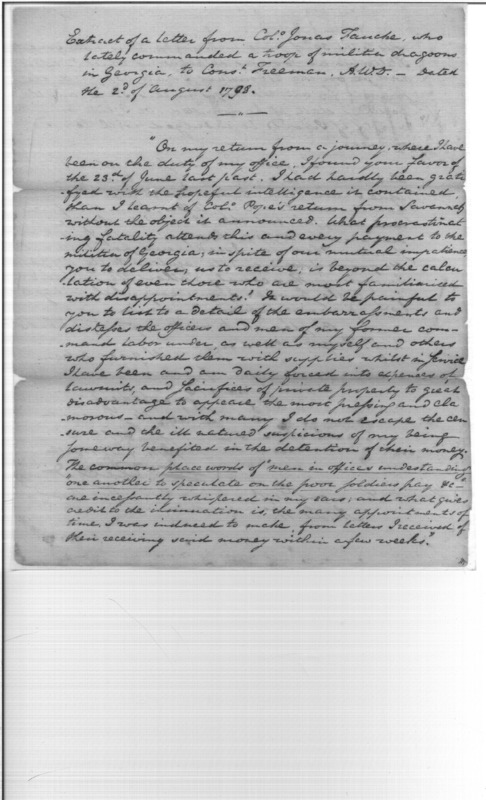 Extract of a letter from Col.o Jonas Fauche, who
lately commanded a troop of militia dragoons
in Georgia, to Cons.t Freeman, A.W.D. — Dated
the 2.d of August 1798.
"On my return from a journey, where I have
been on the duty of my office, I found your favor of
the 23.d of June last past. I had hardly been grati-
fyed with the hopeful intelligence it contained,
than I learnt of Col.o Pope's return from Savannah
without the object it announced. What procrastinat-
ing fatality attends this and every payment to the
militia of Georgia; in spite of our mutual impatience,
you to deliver, us to receive, is beyond the calcu-
lation of even those who are most familiarized
with disappointments! It would be painful to
you to list to a detail of the embarrassments and
distresses the officers and men of my former com-
mand labor under, as well as myself and others
who furnished them with supplies whilst in service
I have been and am daily forced into expences of
lawsuits, and sacrifices of private property to great
disadvantage to appease the most pressing and cla-
morous — and with many I do not escape the cen-
sure and the ill natured suspicions of my being
someway benefited in the detention of their money.
The common place words of "men in offices understanding
"one another to speculate on the poor soldiers pay &c"
are incessantly whispered in my ears; and what gives
credit to the insinuation is, the many appointments of
time, I was induced to make, from letters I received of
their receiving said money within a few weeks."